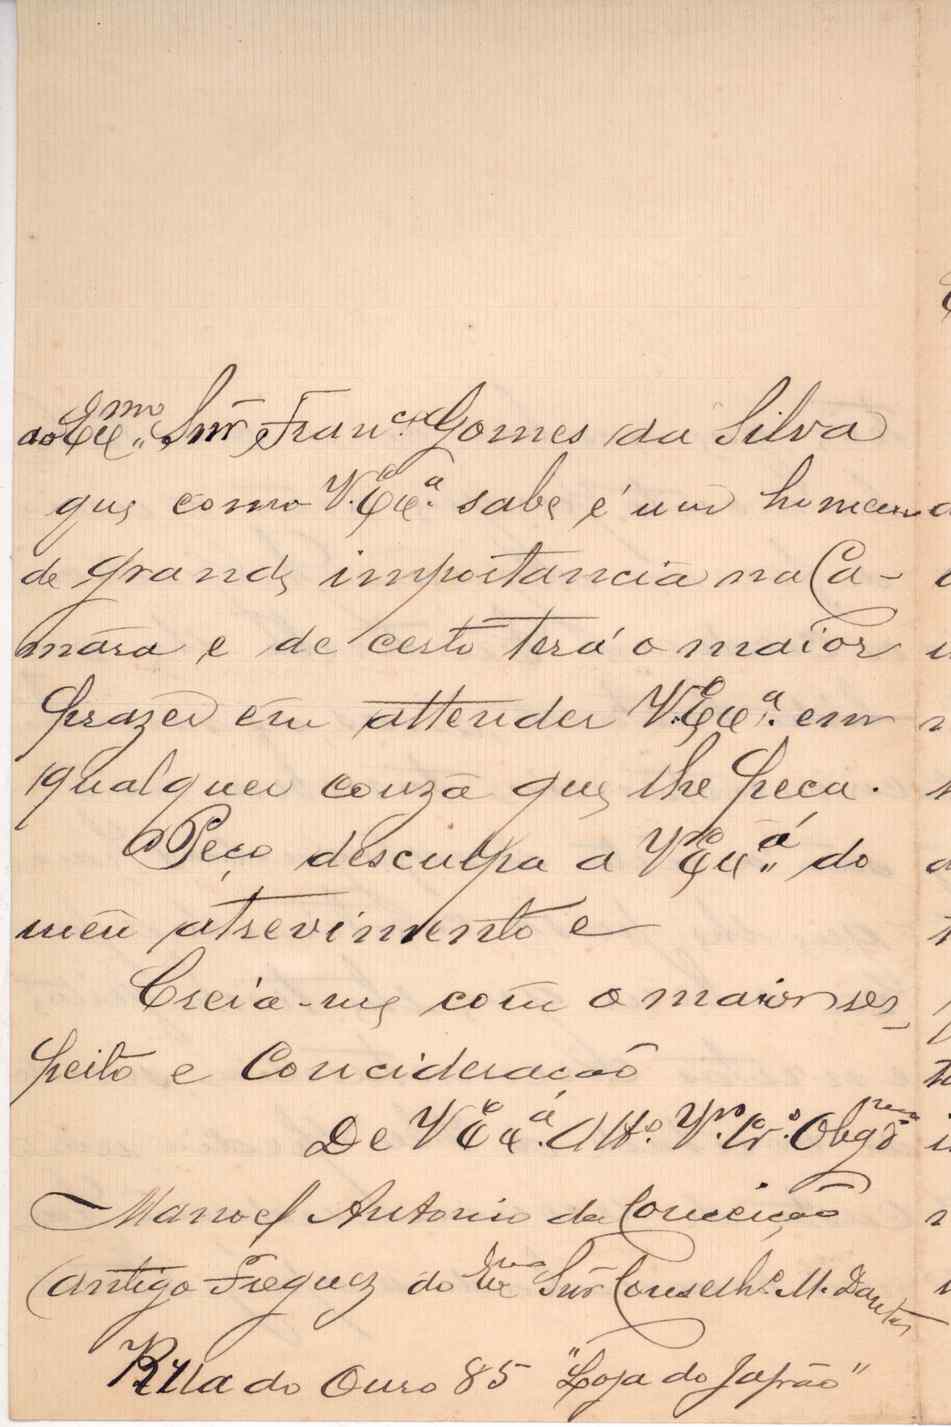 ao Exmo Snr Franco Gomes da Silva
que como V. Exa. sabe é um homem
de grande importancia na Ca-
mara e de certo terá o maior
prazer em attender V. Exa. em
qualquer couza que lhe peça.
Peço desculpa a V Exa. do
meu atrevimento e
Creia-me com o maior res_
peito e Concideração
De V Exa. Atto. Vor. Cro. Obgdo
Manoel Antonio da Conceição
(antigo Freguez do Exmo Snr Conselho. M. Dantas
Rua do Ouro 85 "Loja do Japão"